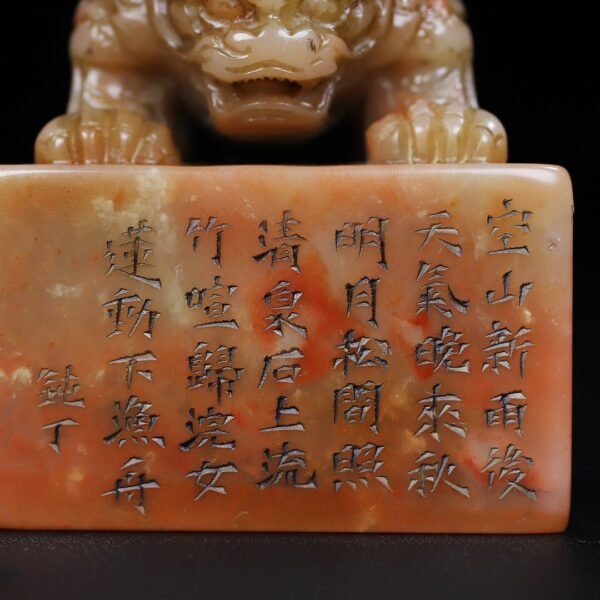 空山新雨後
天氣晚來秋
明月松間照
清泉石上流
竹喧歸浣女
蓮動下漁舟
鈍丁